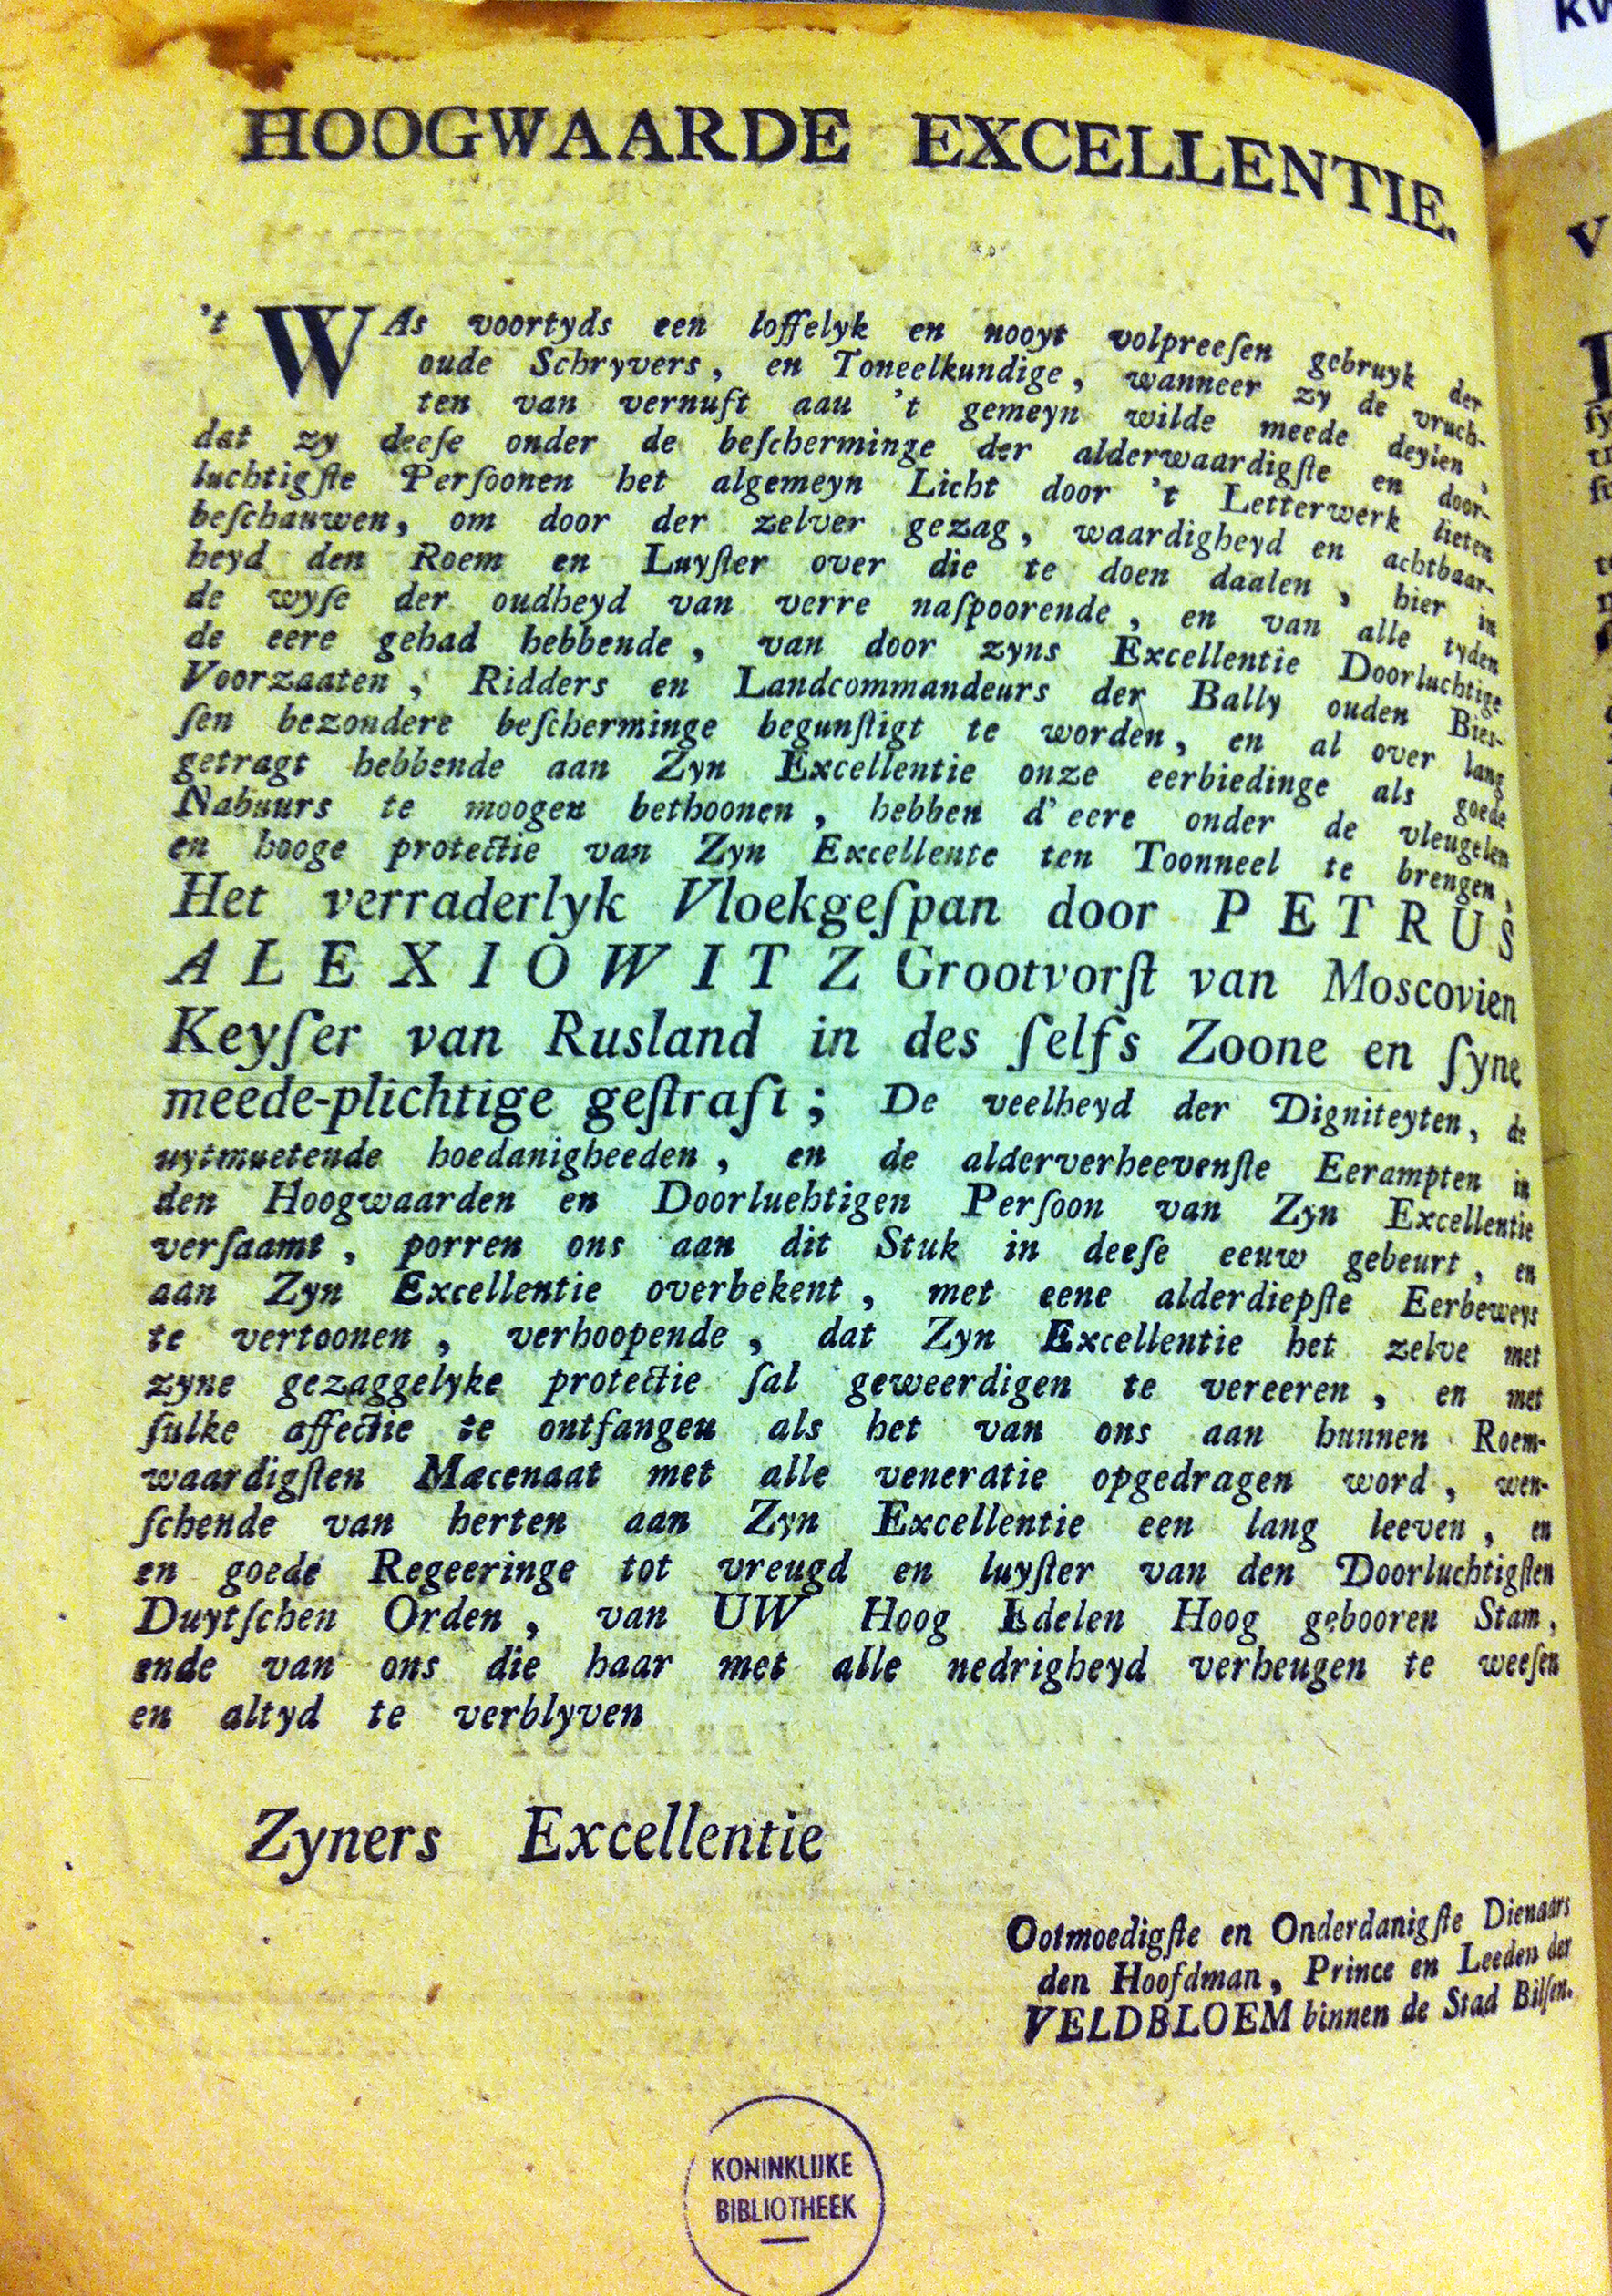 HOOGWAARDE EXCELLENTIE.
't WAs voortyds een loffelyk en nooyt volpreeſen gebruyk der
oude Schryvers, en Toneelkundige, wanneer zy de vruch-
ten van vernuft aau 't gemeyn wilde meede deylen,
dat zy deeſe onder de beſcherminge der alderwaardigſte en door-
luchtigſte Perſoonen het algemeyn Licht door 't Letterwerk lieten
beſchauwen, om door der zelver gezag, waardigheyd en achtbaar-
heyd den Roem en Luyſter over die te doen daalen, hier in
de wyſe der oudheyd van verre naſpoorende, en van alle tyden
de eere gehad hebbende, van door zyns Excellentie Doorluchtige
Voorzaaten, Ridders en Landcommandeurs der Bally ouden Bies-
ſen bezondere beſcherminge begunſtigt te worden, en al over lang
getragt hebbende aan Zyn Excellentie onze eerbiedinge als goede
Nabuurs te moogen bethoonen, hebben d'eere onder de vleugelen
en hooge protectie van Zyn Excellente ten Toonneel te brengen,
Het verraderlyk Vloekgeſpan door PETRUS
ALEXIOWITZ Grootvorſt van Moscovien
Keyſer van Rusland in des ſelfs Zoone en ſyne
meede-plichtige geſtraft; De veelheyd der Digniteyten, de
uytmuetende hoedanigheeden, en de alderverheevenſte Eerampten in
den Hoogwaarden en Doorluehtigen Perſoon van Zyn Excellentie
verſaamt, porren ons aan dit Stuk in deeſe eeuw gebeurt, en
aan Zyn Excellentie overbekent, met eene alderdiepſte Eerbeweys
te vertoonen, verhoopende, dat Zyn Excellentie het zelve met
zyne gezaggelyke protectie ſal geweerdigen te vereeren, en met
ſulke affectie te ontfangen als het van ons aan hunnen Roem-
waardigſten Mæcenaat met alle veneratie opgedragen word, wen-
ſchende van herten aan Zyn Excellentie een lang leeven, en
en goede Regeeringe tot vreugd en luyſter van den Doorluchtigſten
Duytſchen Orden, van UW Hoog Edelen Hoog gebooren Stam,
ende van ons die haar met alle nedrigheyd verheugen te weeſen
en altyd te verblyven
Zyners Excellentie
Ootmoedigſte en Onderdanigſte Dienaars
den Hoofdman, Prince en Leeden der
VELDBLOEM binnen de Stad Bilſen.
KONINKLIJKE
BIBLIOTHEEK